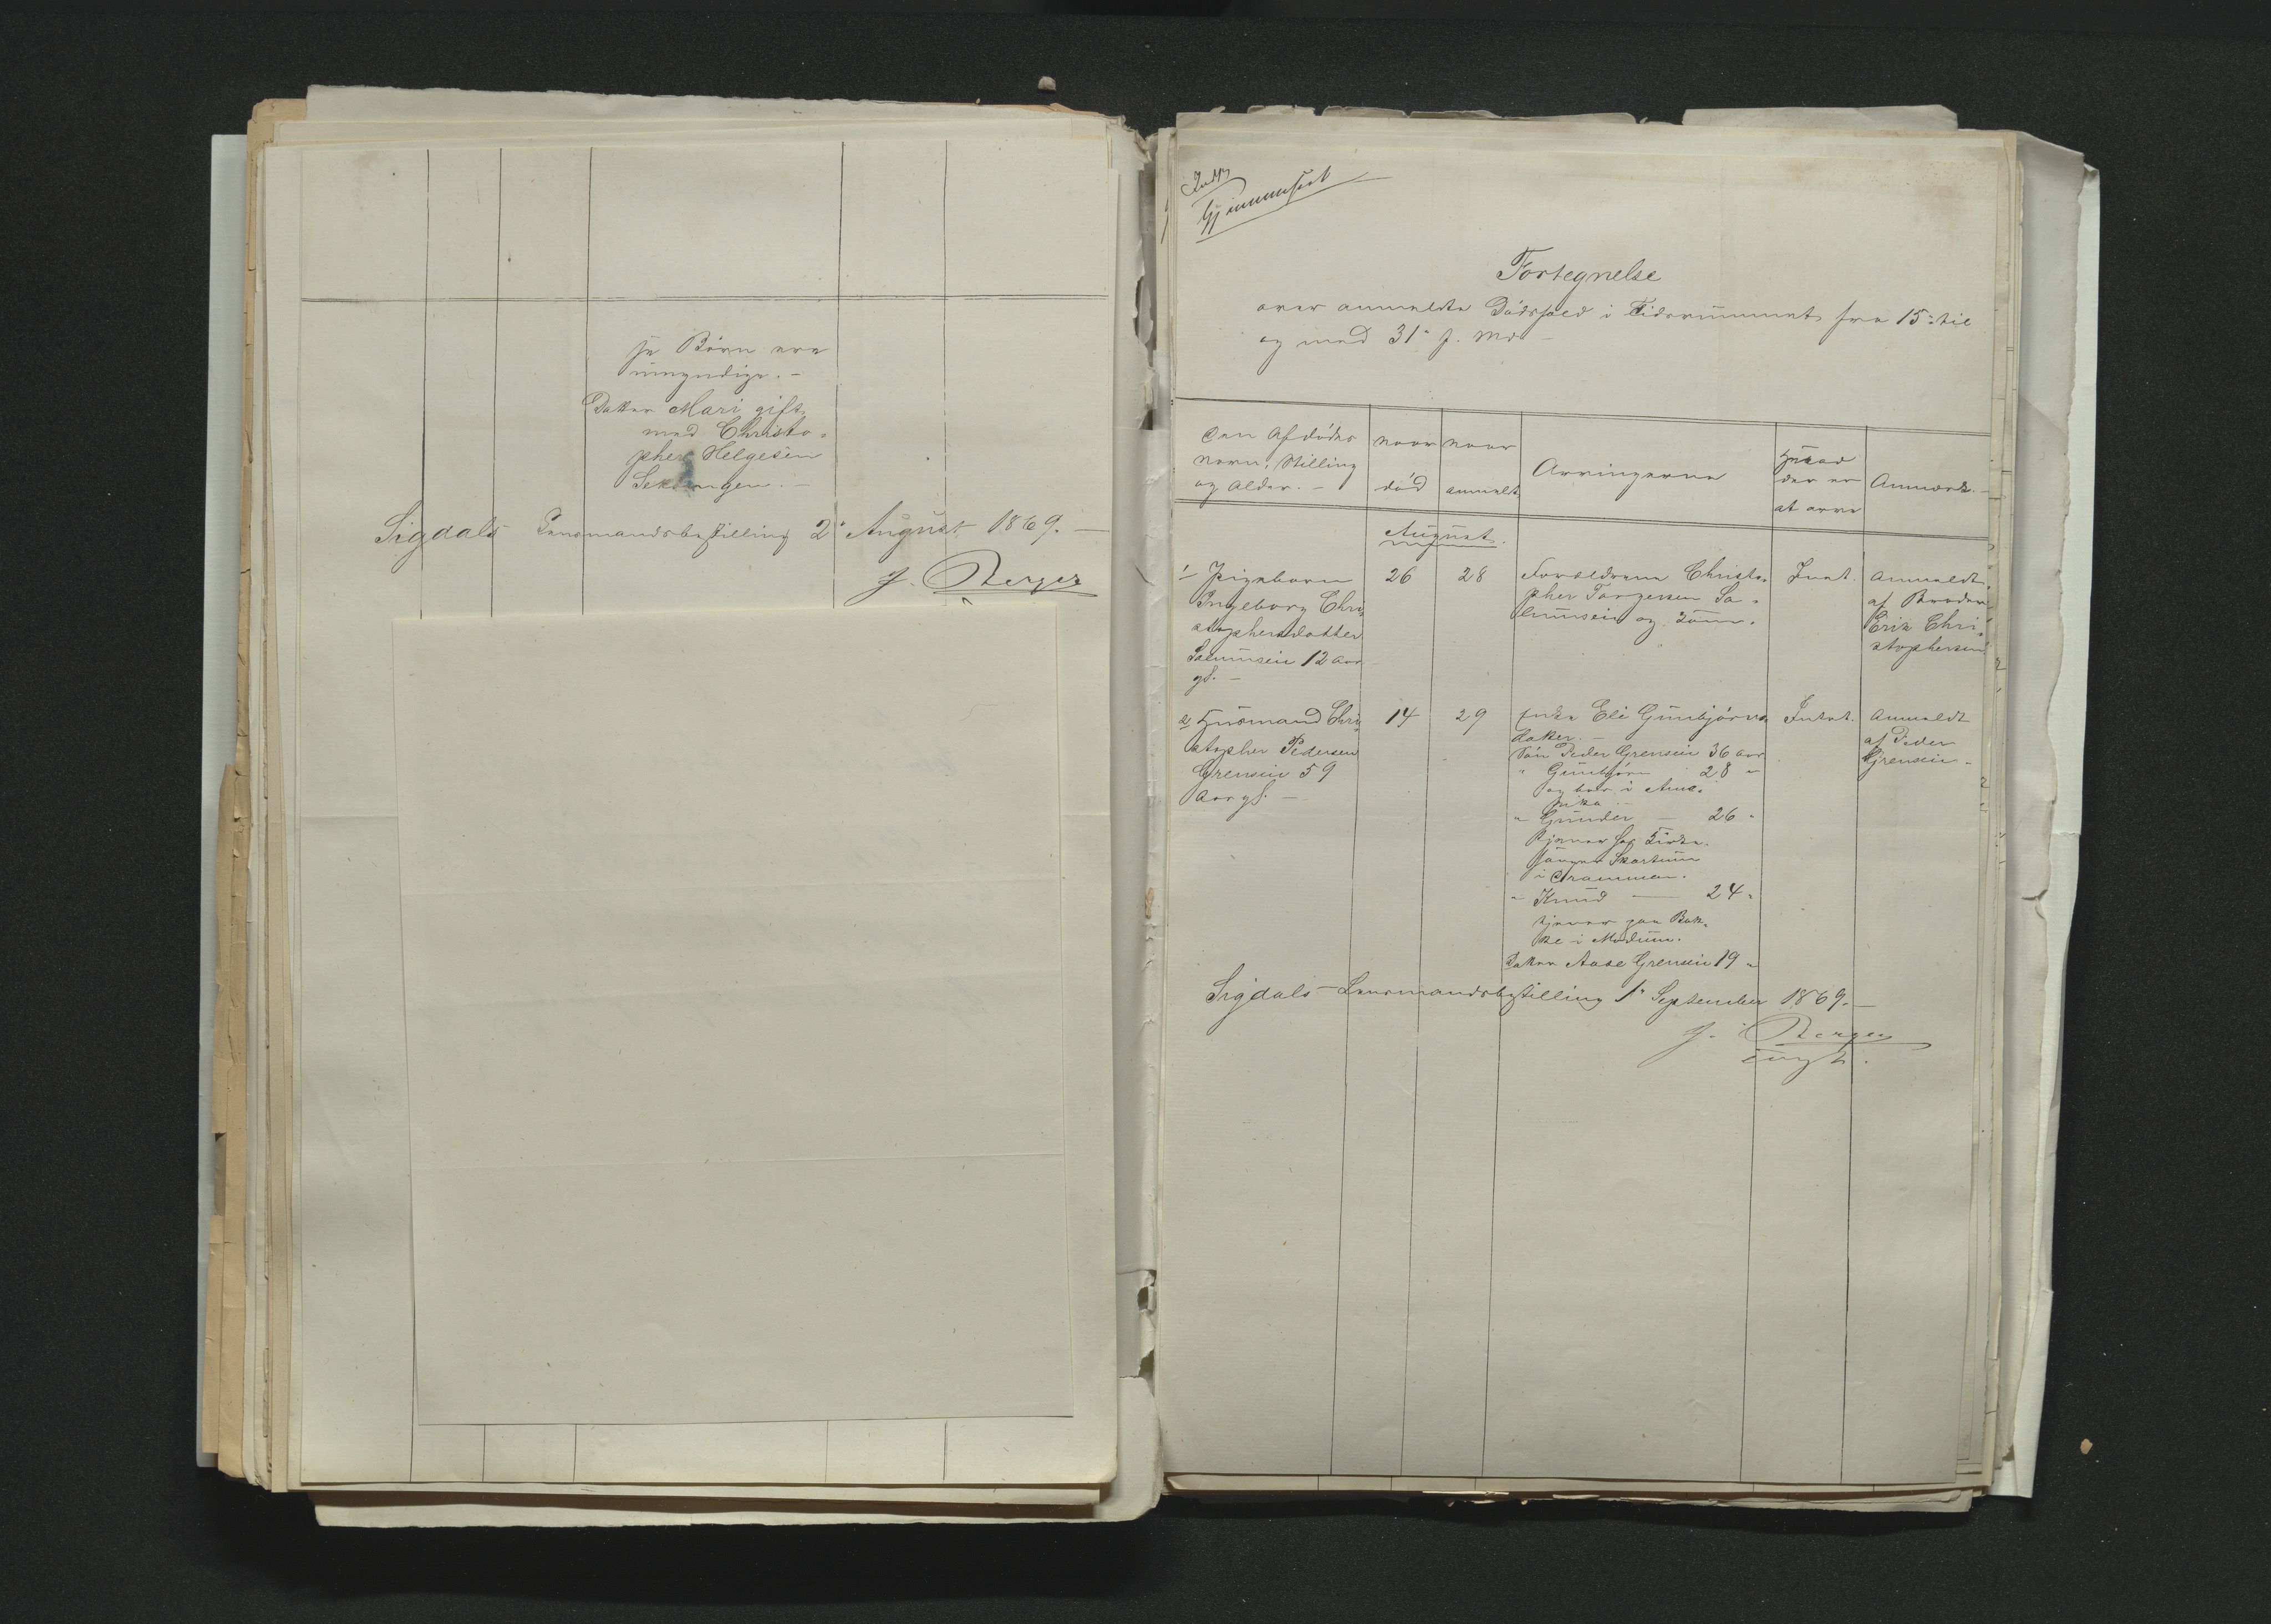 ge Børn ere
umyndige. –
Datter Mari gift
med Christo-
pher Helgesen
Sigdals Lensmandsbestilling 2' August 1869. –
J. Berger
Indf.
Gjennemseet
Fortegnelse
over anmeldte Dødsfald i Tidsrummet fra 15' til
og med 31' f. Md.
Den Afdødes
Navn, Stilling
og Alder. –
naar
død
naar
anmeldt
Arvingerne
Hvad
der er
at arve
Anmærk. –
August.
1 Pigebarn
Ingeborg Chri-
stophersdatter
12 Aar
gl. –
26
28
Forældrene Christo-
pher Torgersen
Intet.
Anmeldt
af Broder
Erik Chri-
stophersen
2 Husmand Chri-
stopher Pedersen
Grensen 59
Aar gl. –
14
29
Enke Eli Gunbjørns-
datter. –
Søn Peder Grensen 36 Aar
" Gunbjørn 28 "
og bor i Ame-
rika. –
" Gunder – 26 "
tjener hos
i Drammen.
" Knud – 24 "
tjener paa Bak-
ke i Modum.
Datter Aase Grensen 19 "
Intet.
Anmeldt
af Peder
Grensen –
Sigdals Lensmandsbestilling 1' September 1869. –
J. Berger